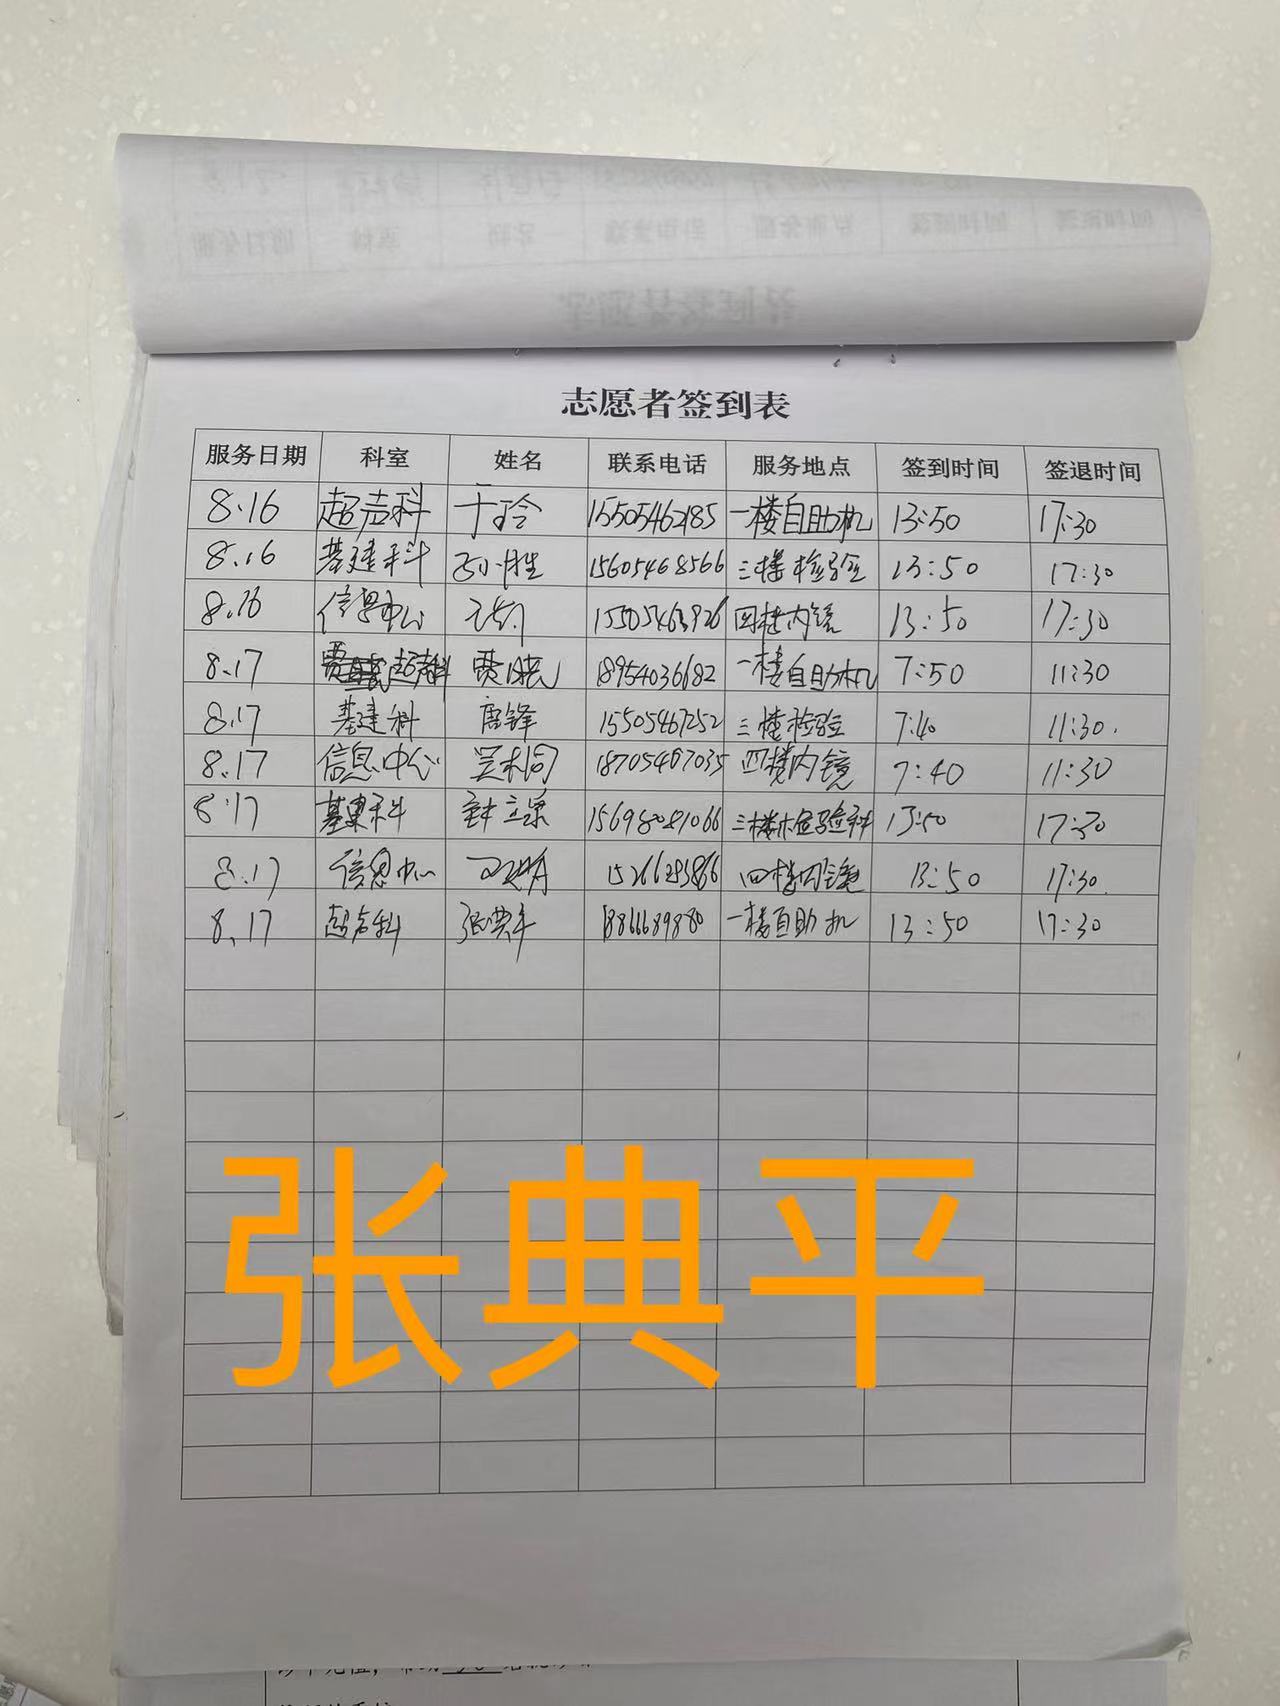 志愿者签到表
服务日期 科室 姓名 联系电话 服务地点 签到时间 签退时间
8.16 超声科 于玲 15505462185 一楼自助机 13:50 17:30
8.16 基建科 15605468566 三楼检验 13:50 17:30
8.16 信息中心 四楼内镜 13:50 17:30
8.17 超声科 贾晓 18954036682 一楼自助机 7:50 11:30
8.17 基建科 唐锋 15505467252 三楼检验 7:40 11:30.
8.17 信息中心 18705467035 四楼内镜 7:40 11:30
8.17 基建科 15698081066 三楼检验科 13:50 17:30
8.17 信息中心 四楼内镜 13:50 17:30
8.17 超声科 张典平 18866689880 一楼自助机 13:50 17:30
张典平